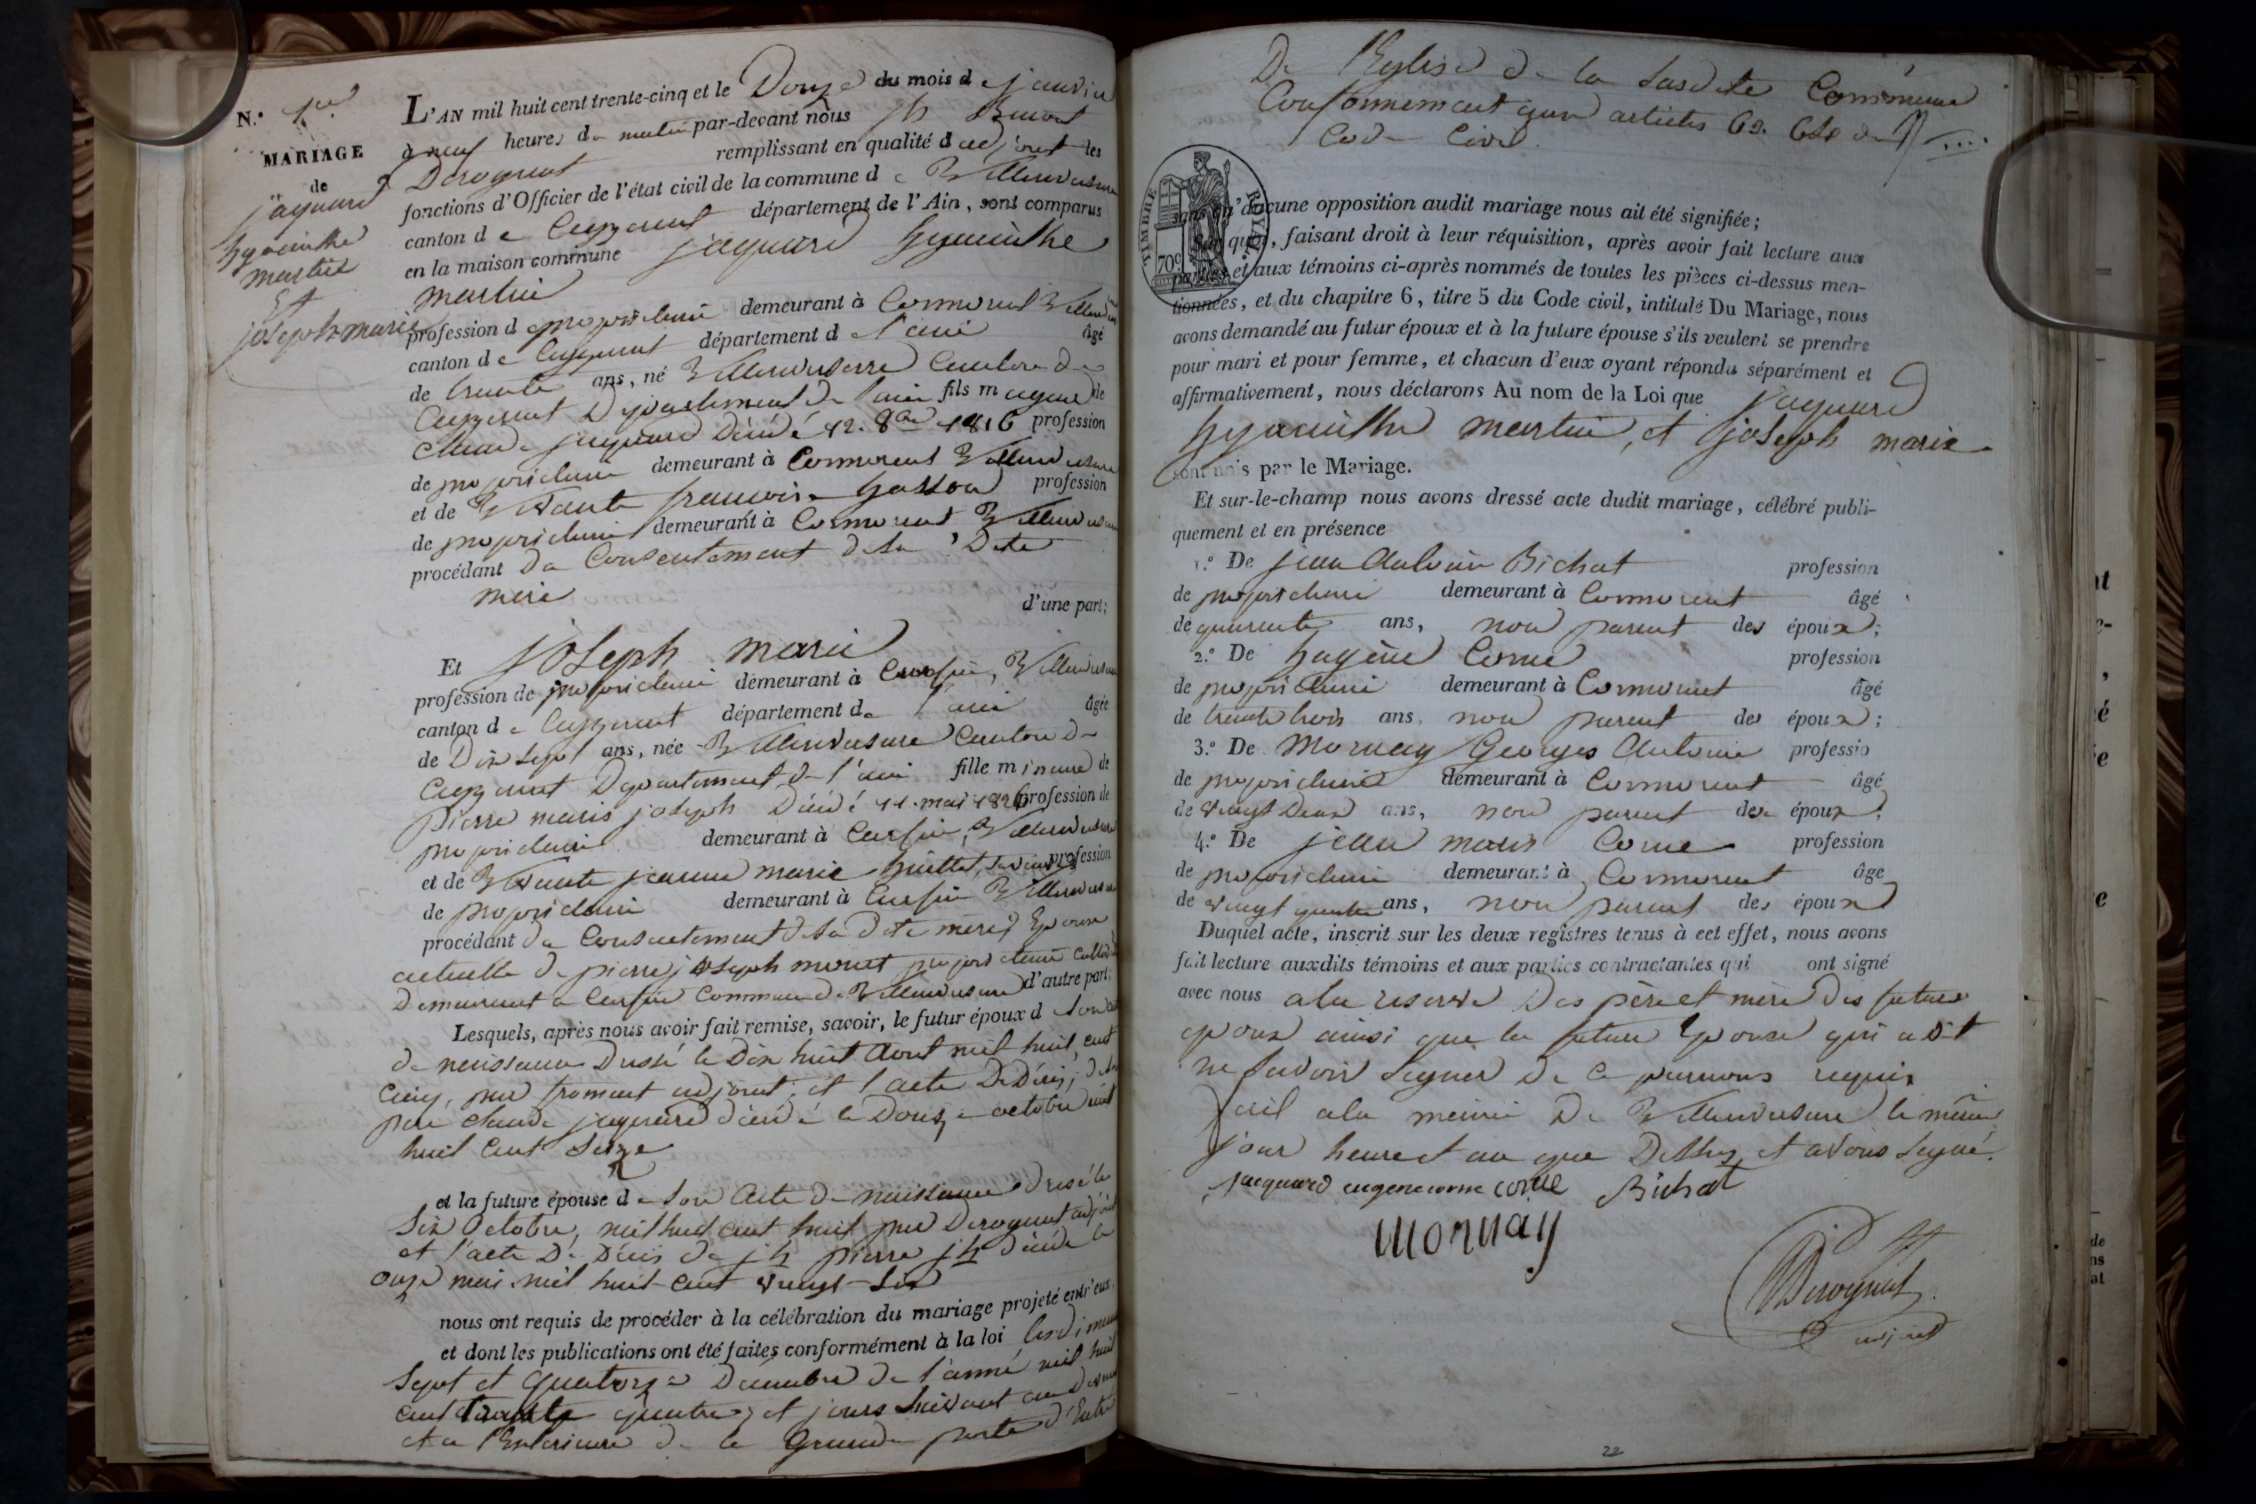 N.° 1er
MARIAGE
de
jaquard
hyacinthe
martin
Et
joseph marie
L'AN mil huit cent trente-cinq et le Douze du mois de janvier
à neuf heures du matin par-devant nous jh
Derognat remplissant en qualité d adjoint les
fonctions d'Officier de l'état civil de la commune de Villereversure
canton de Ceyzeriat département de l'Ain, sont comparus
en la maison commune jaquard hyacinthe
martin
profession de propriétaire demeurant à Cormorant Villereversure
canton de Ceyzeriat département de l'ain âgé
de trente ans, né Villereversure Canton de
Ceyzeriat Département de l'ain fils majeur de
Claude jaquard Décédé 12. 8bre 1816 profession
de propriétaire demeurant à Cormorant Villereversure
et de Vivante francoise profession
de propriétaire demeurant à Cormorant Villereversure
procédant du Consentement de sa Dite
mère
d'une part;
Et joseph marie
profession de propriétaire demeurant à Villereversure
canton de Ceyzeriat département de l'ain âgée
de Dix sept ans, née Villereversure Canton de
Ceyzeriat Département de l'ain fille mineure de
pierre marie joseph Décédé 11. mai 1826 profession de
propriétaire demeurant à Villereversure
et de Vivante jeanne marie profession
de propriétaire demeurant à Villereversure
procédant du Consentement de sa Dite mère, Epouse
actuelle de pierre joseph moret propriétaire
Demeurant a commune de Villereversure d'autre part;
Lesquels, après nous avoir fait remise, savoir, le futur époux de son acte
de naissance Dressé le Dix huit aout mil huit cent
cinq, par adjoint; et l'acte De Décès, de son
père Claude jaquard décédé le Douze octobre mil
huit cent seize
et la future épouse de son acte de naissance dressé le
Six octobre, mil huit cent huit par Derognat adjoint
et l'acte De Décès de jh pierre jh décédé le
onze mai mil huit cent vingt-six
nous ont requis de procéder à la célébration du mariage projeté entr'eux,
et dont les publications ont été faites conformément à la loi les dimanches
Sept et quatorze Décembre de l'année mil huit
cent trente quatre, et jours suivant au devant
et a l'Exterieure de la grande porte d'Entrée
De l'Eglise de la susdite Commune
Conformement aux articles 63. 64 du
Code Civil.
TIMBRE ROYAL
70c
sans qu'aucune opposition audit mariage nous ait été signifiée;
Sur quoi, faisant droit à leur réquisition, après avoir fait lecture aux
parties et aux témoins ci-après nommés de toutes les pièces ci-dessus men-
tionnées, et du chapitre 6, titre 5 du Code civil, intitulé Du Mariage, nous
avons demandé au futur époux et à la future épouse s'ils veulent se prendre
pour mari et pour femme, et chacun d'eux ayant répondu séparément et
affirmativement, nous déclarons Au nom de la Loi que jaquard
hyacinthe martin, et joseph marie
sont unis par le Mariage.
Et sur-le-champ nous avons dressé acte dudit mariage, célébré publi-
quement et en présence
1.° De jean Antoine Bichat profession
de propriétaire demeurant à Cormorant âgé
de quarante ans, non parent des époux;
2.° De Eugène Corne profession
de propriétaire demeurant à Cormorant âgé
de trente trois ans, non parent des époux;
3.° De Mornay Georges Antoine professio
de propriétaire demeurant à Cormorant âgé
de vingt Deux ans, non parent des époux;
4.° De jean marie Corne profession
de propriétaire demeurant à Cormorant âge
de vingt quatre ans, non parent des époux
Duquel acte, inscrit sur les deux registres tenus à cet effet, nous avons
fait lecture auxdits témoins et aux parties contractantes qui ont signé
avec nous a la reserve Des père et mère Des futurs
epoux ainsi que la future Epouse qui a dit
ne savoir signer de ce par nous requis
fait a la mairie De Villereversure le même
jour heure et an que Dessus, et avons signé.
jacquard eugene corne corne Bichat
Mornay
Derognat
adjoint
22